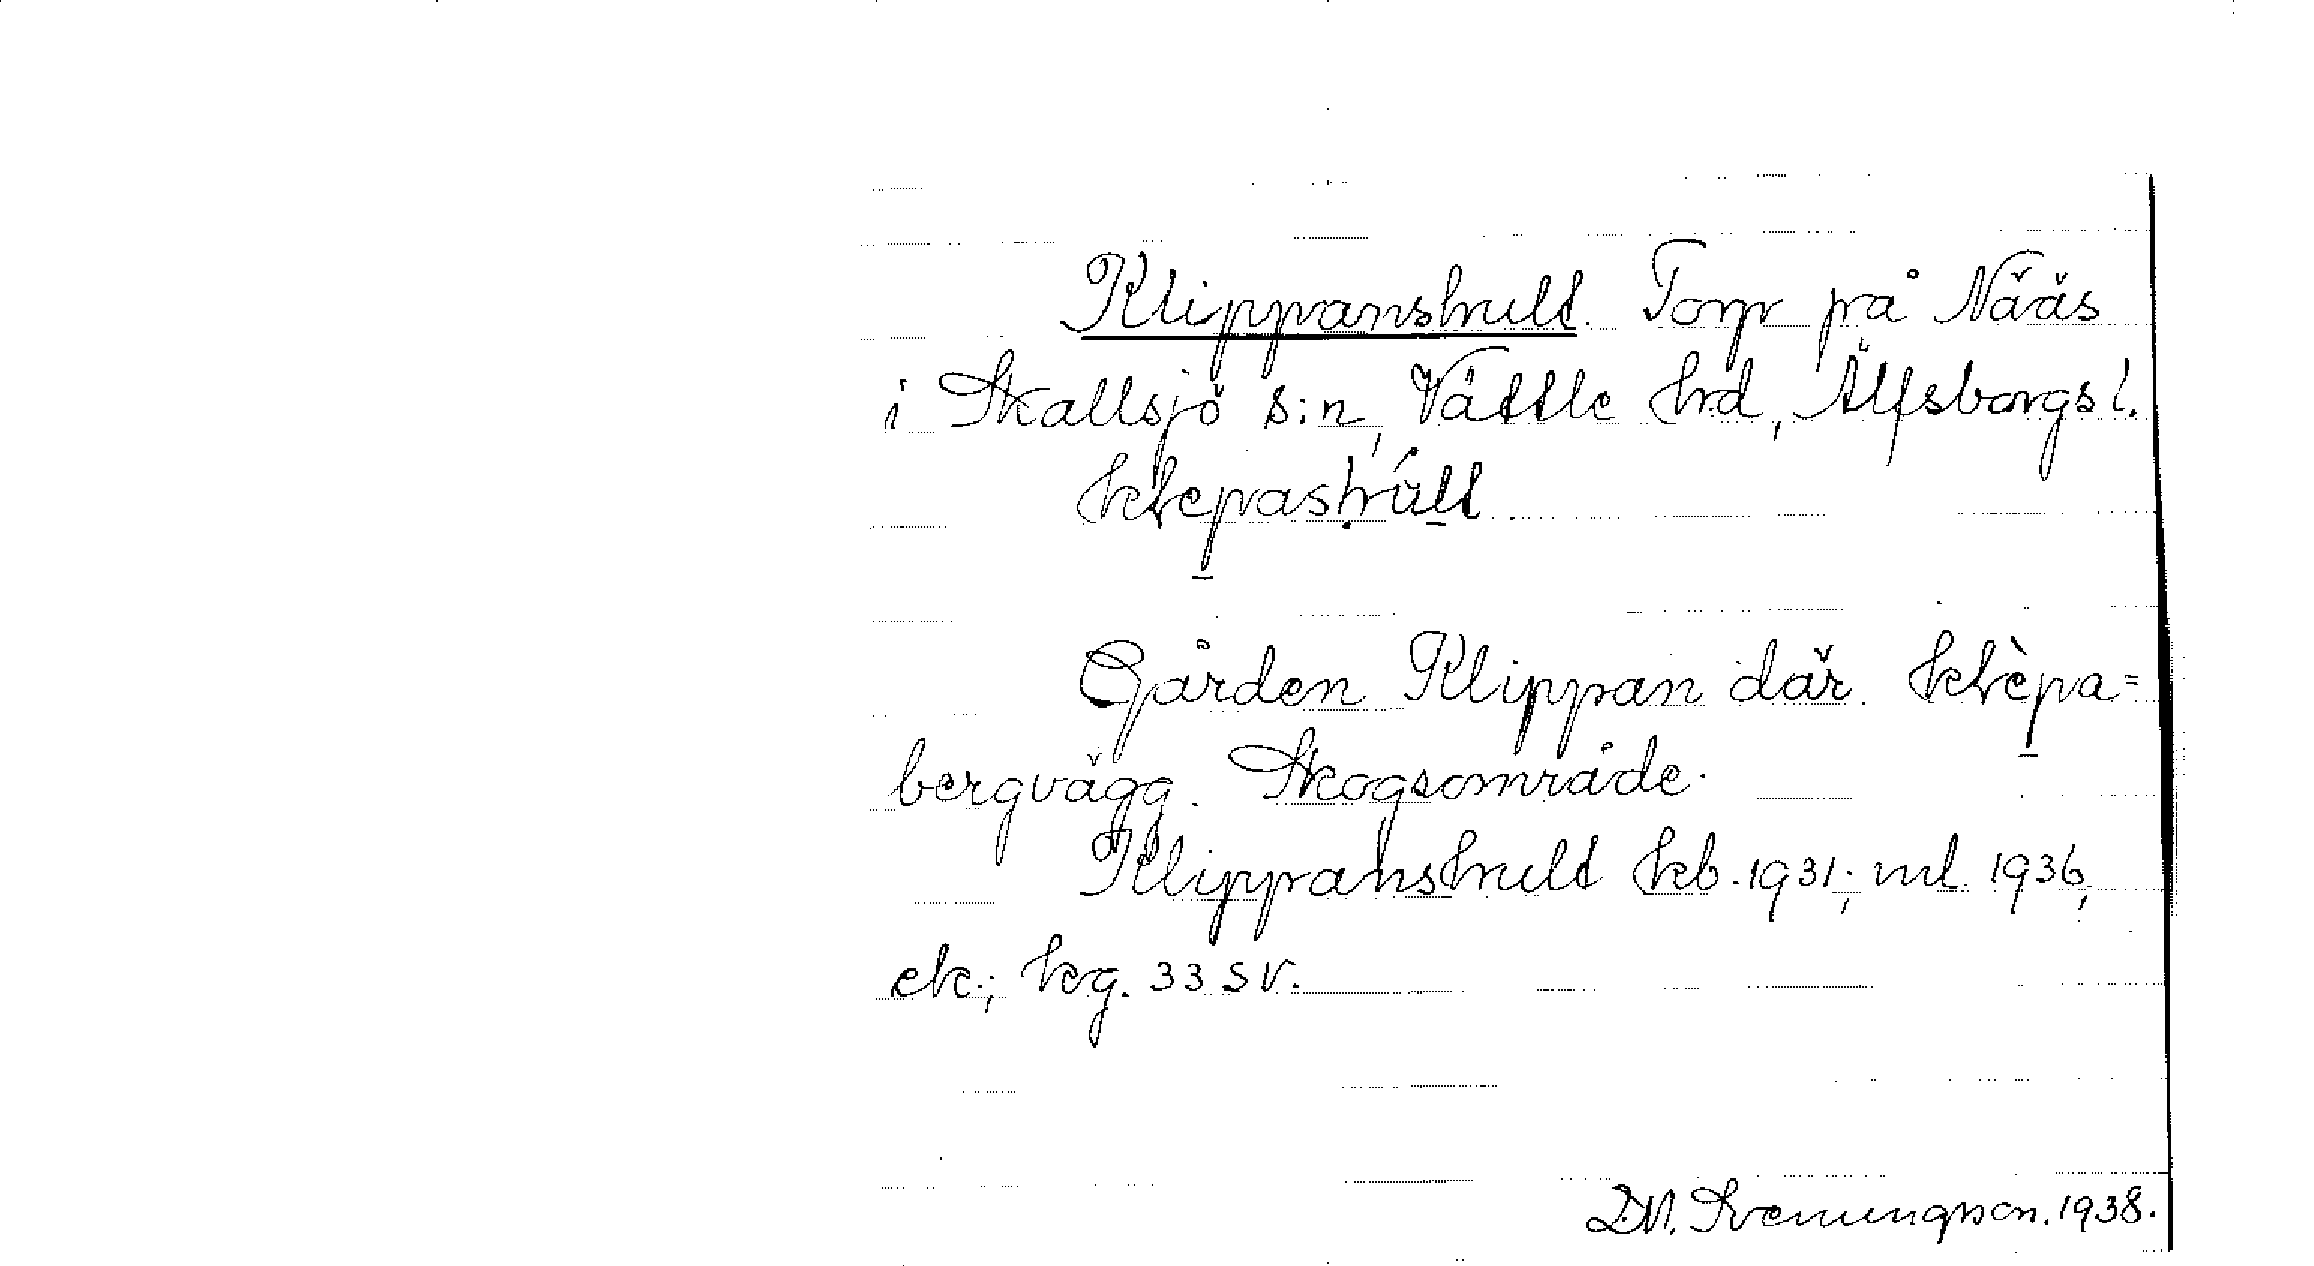 Klippanshult. Torp på Nääs
i Skallsjö s:n, Vättle hd, Älfsborgs l.
klepashúlt
Gården Klippan där. klèpa=
bergvägg. Skogsområde.
Klippanshult kb. 1931; ml. 1936,
ek.; kg. 33 SV.
Svenungsson. 1938.